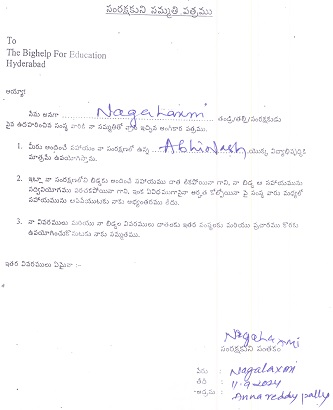 సంరక్షకుని సమ్మతి పత్రము
To
The Bighelp For Education
Hyderabad
అయ్యా!
నేను అనగా Nagalaxmi తండ్రి/తల్లి/సంరక్షకుడు
పైన ఉదహరించిన సంస్థ వారికి నా సమ్మతితో వ్రాసి ఇచ్చిన అంగీకార పత్రము.
1. మీరు అందించే సహాయం నా సంరక్షణలో ఉన్న Abhinash యొక్క విద్యాభివృద్ధికి
మాత్రమే ఉపయోగిస్తాను.
2. ఇట్లు నా సంరక్షణలోని బిడ్డకు అందించే సహాయము దాత లేకపోయినా గాని, నా బిడ్డ ఆ సహాయమును
సద్వినియోగము పరచకపోయినా గాని, ఇంక ఏవిధముగానైనా అర్హత కోల్పోయినా పై సంస్థ వారు మధ్యలో
సహాయమును ఆపివేయుటకు నాకు అభ్యంతరము లేదు.
3. నా వివరములు మరియు నా బిడ్డల వివరములు దాతలకు ఇతర సంస్థలకు మరియు ప్రచారము కొరకు
ఉపయోగించుకొనుటకు నాకు సమ్మతము.
ఇతర వివరములు ఏమైనా :-
Nagalaxmi
సంరక్షకుని సంతకం
పేరు : Nagalaxmi
తేది : 11-9-2024
Annareddy pally